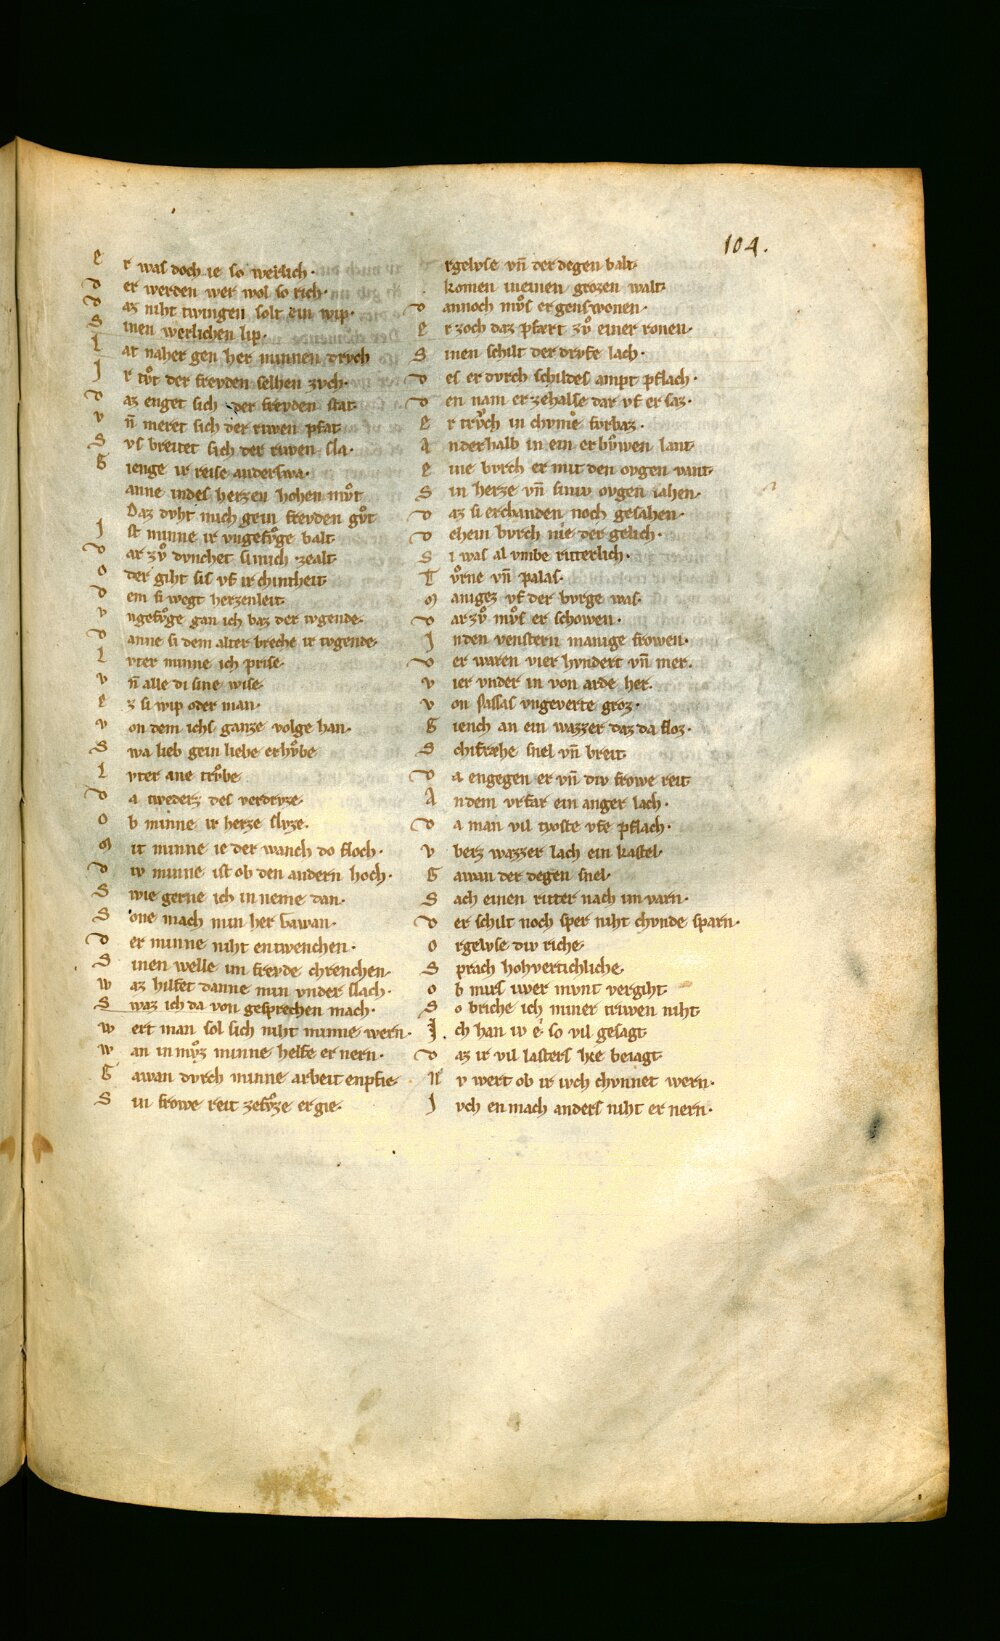 104.
E r was doch ie so werlich·
D er werden wer wol so rich·
D az niht twingen solt ein wip·
S inen werlichen lip·
L at naher gen her minnen drvch
J r tvͦt der freyden selhen zvch·
D az enget sich der freyden stat
V n̄ meret sich der riwen pfat
S vs breitet sich der riwen sla·
G ienge ir reise anderswa·
anne indes herzen hohen mvͦt
Daz dvht mich gein freyden gvͦt
J st minne ir vngefvͦge balt
D ar zvͦ dvnchet si mich zealt
O der giht sis vf ir chintheit
D em si fvegt herzenleit
V ngefvͦge gan ich baz der tvgende·
D anne si dem alter breche ir tvgende·
L vter minne ich prise·
V n̄ alle di sine wise
E z si wip oder man·
V on dem ichs ganze volge han·
S wa lieb gein liebe erhvͤbe
L vter ane trvͤbe
D a tweders des verdryze
O b minne ir herze slvze·
M it minne ie der wanch do floch·
D iv minne ist ob den andern hoch·
S wie gerne ich in neme dan·
S one mach min her Gawan·
D er minne niht entwenchen·
S inen welle im freyde chrenchen·
W az hilfet danne min vnder slach·
S waz ich da von gesprechen mach·
W ert man sol sich niht minne wern·
W an in mvͦz minne helfe er nern·
G awan dvrch minne arbeit enpfie
S in frowe reit zefvͦze er gie·
rgelvse vn̄ der degen balt·
komen in einen grozen walt·
D annoch mvͦs er gens wonen·
E r zoch daz pfært zvͦ einer ronen·
S inen schilt der drvfe lach·
D es er dvrch schildes ampt pflach·
D en nam er zehalse dar vf er saz·
E r trvͦch in chvme fvrbaz·
A nderhalb in ein erbvͦwen lant
E ine bvrch er mit den ovgen vant·
S in herze vn̄ siniv ovgen iahen·
D az si erchanden noch gesahen·
D ehein bvrch nie der gelich·
S i was al vmbe ritterlich·
T vͤrne vn̄ palas·
M anigez vf der bvrge was·
D ar zvͦ mvͦs er schowen·
J nden venstern manige frowen·
D er waren vier hvndert vn̄ mer·
V ier vnder in von arde her·
V on passas vngeverte groz·
G iench an ein wazzer daz da floz·
S chifræhe snel vn̄ breit
D a engegen er vn̄ div frowe reit
A ndem vrfar ein anger lach·
D a man vil tvoste vfe pflach·
V berz wazzer lach ein kastel·
G awan der degen snel·
S ach einen ritter nach im varn·
D er schilt noch sper niht chvnde sparn·
O rgelvse div riche
S prach hohvertichliche·
O b mirs iwer mvnt vergiht
S o briche ich miner triwen niht
J ch han iv e· so vil gesagt
D az ir vil lasters hie beiagt
N v wert ob ir ivch chvnnet wern·
J vch en mach anders niht er nern·